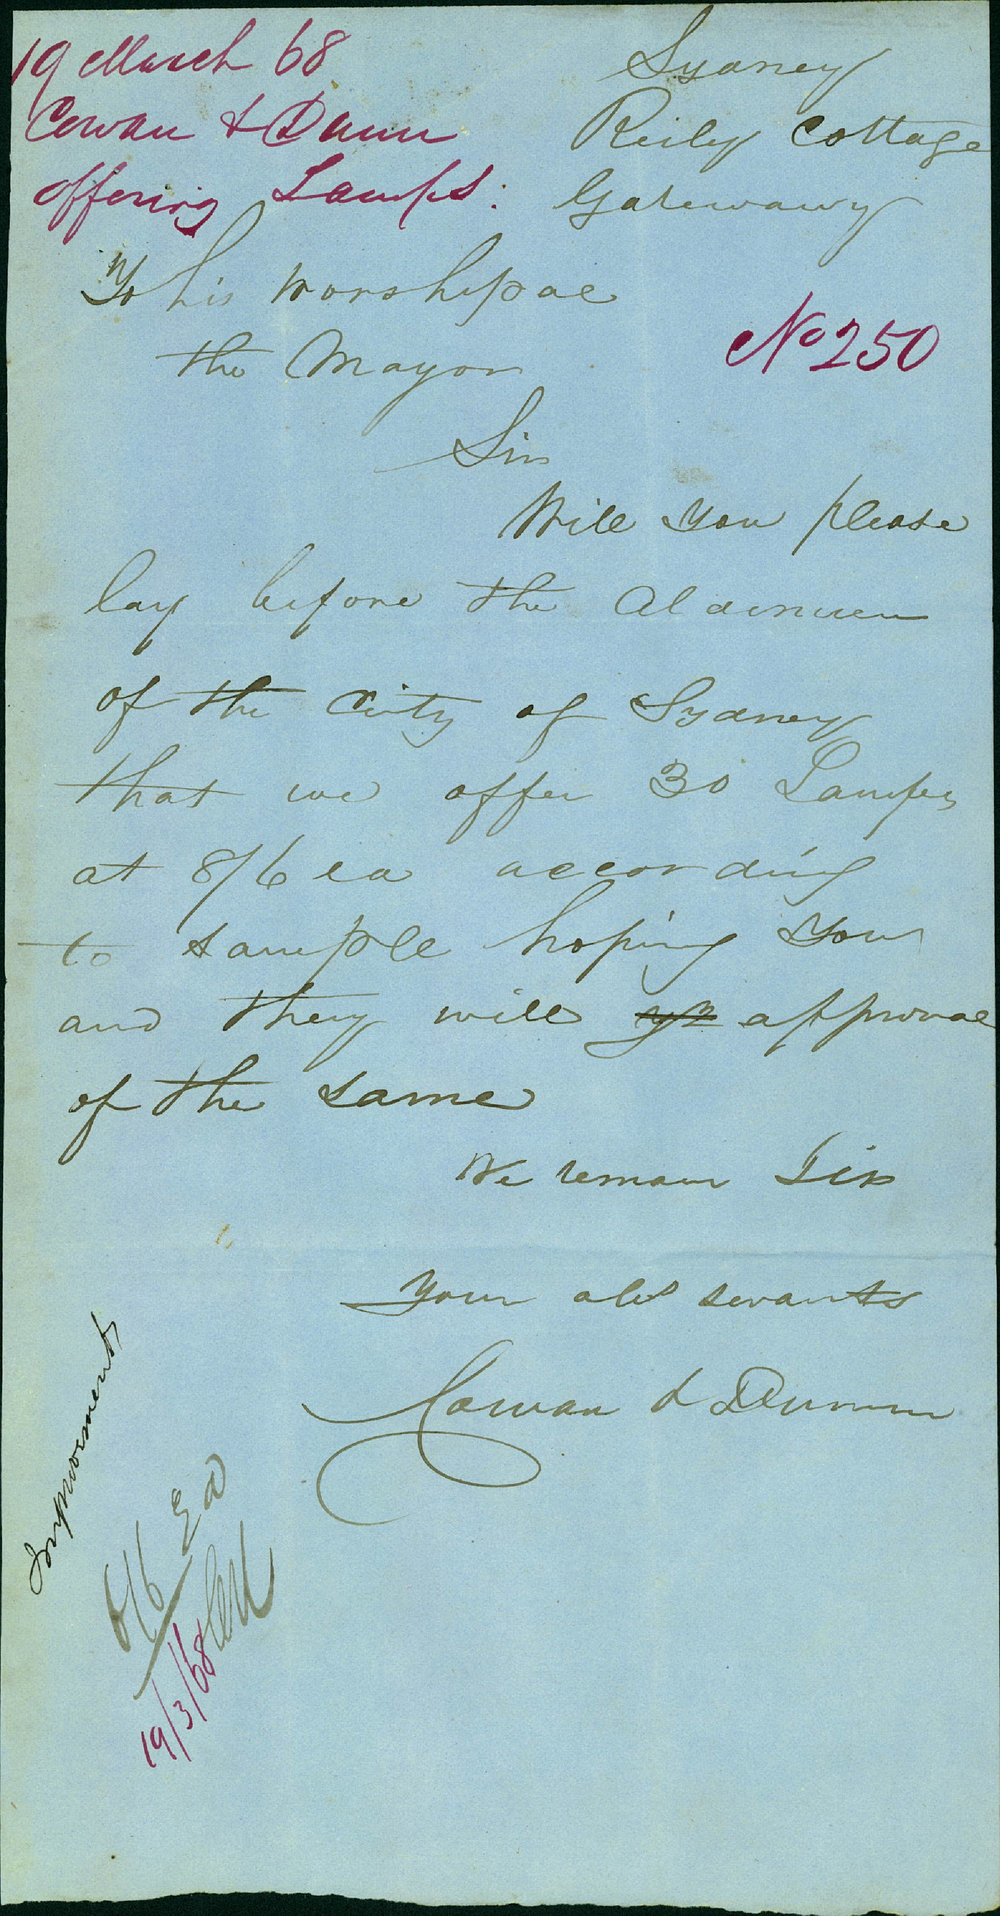 19 March 68
Cowan & Dunn
offering Lamps:
Sydney
Reily Cottage
Gatewawy
No 250
To his Worshipae
the Mayor
Sir
Will you please
lay before the Aldermen
of the City of Sydney
that we offer 30 Lamps
at 8/6 ea according
to sample hoping You
and they will approvae
of the same
We remain Sir
Your obt servants
Cowan & Dunn
Improvement
8/6 Ea
19/3/68